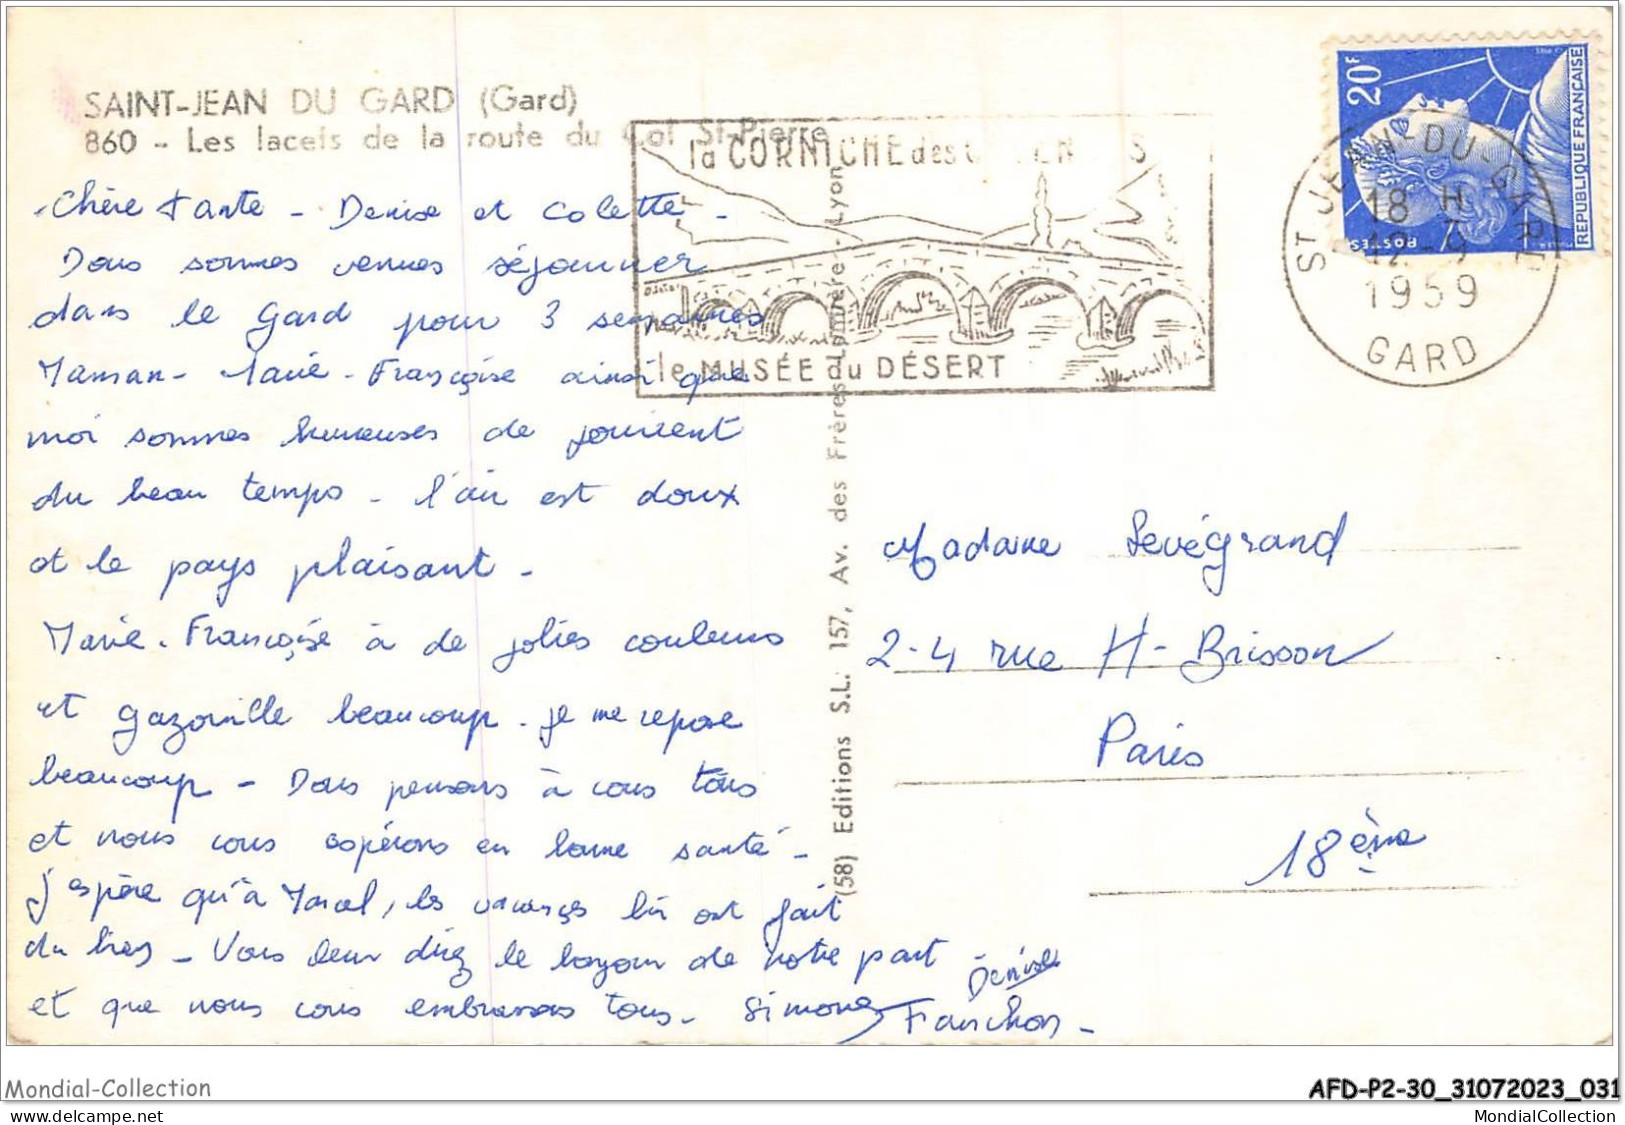 SAINT-JEAN DU GARD (Gard)
860 - Les lacets de la route du Col St-Pierre
Chère tante - Denise et Colette -
Nous sommes venues séjourner
dans le Gard pour 3 semaines
Maman - Marie-Françoise ainsi que
moi sommes heureuses de jouir
du beau temps - l'air est doux
et le pays plaisant -
Marie-Françoise à de jolies couleurs
et gazouille beaucoup - je me repose
beaucoup - Nous pensons à vous tous
et nous vous espérons en bonne santé -
J'espère qu'à Marcel, les vacances lui ont fait
du bien - Vous leur direz le bonjour de notre part -
et que nous vous embrassons tous - Simone
Denise
Fanchon -
la CORNICHE des
le MUSÉE du DÉSERT
(58) Editions S.L. 157, Av. des Frères-Lumière - Lyon
20F
POSTES
REPUBLIQUE FRANÇAISE
ST JEAN-DU-GARD
18 H
12-9
1959
GARD
Madame Sevégrand
2-4 rue H-Brisson
Paris
18ème
Mondial-Collection
AFD-P2-30_31072023_031
www.delcampe.net
MondialCollection